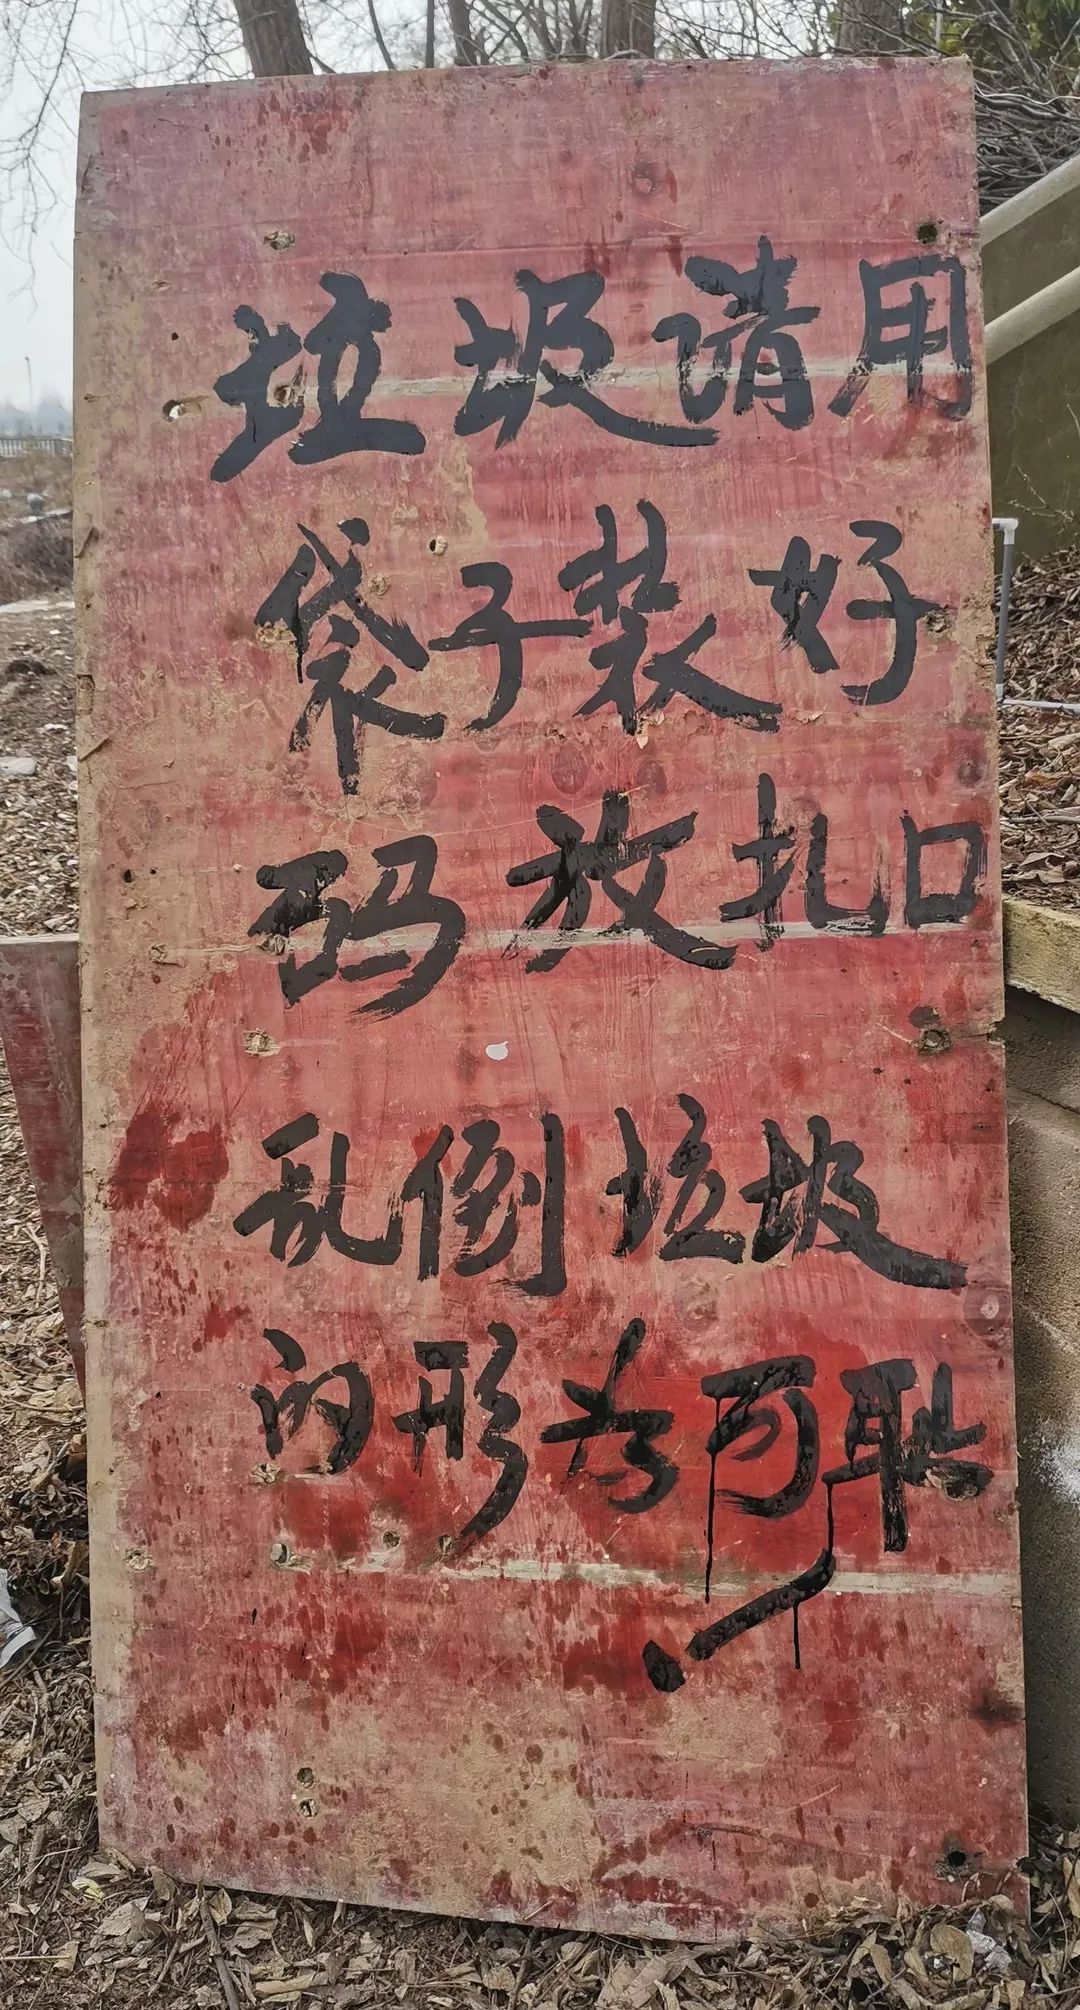 垃圾请用
袋子装好
码放扎口
乱倒垃圾
的形为可耻